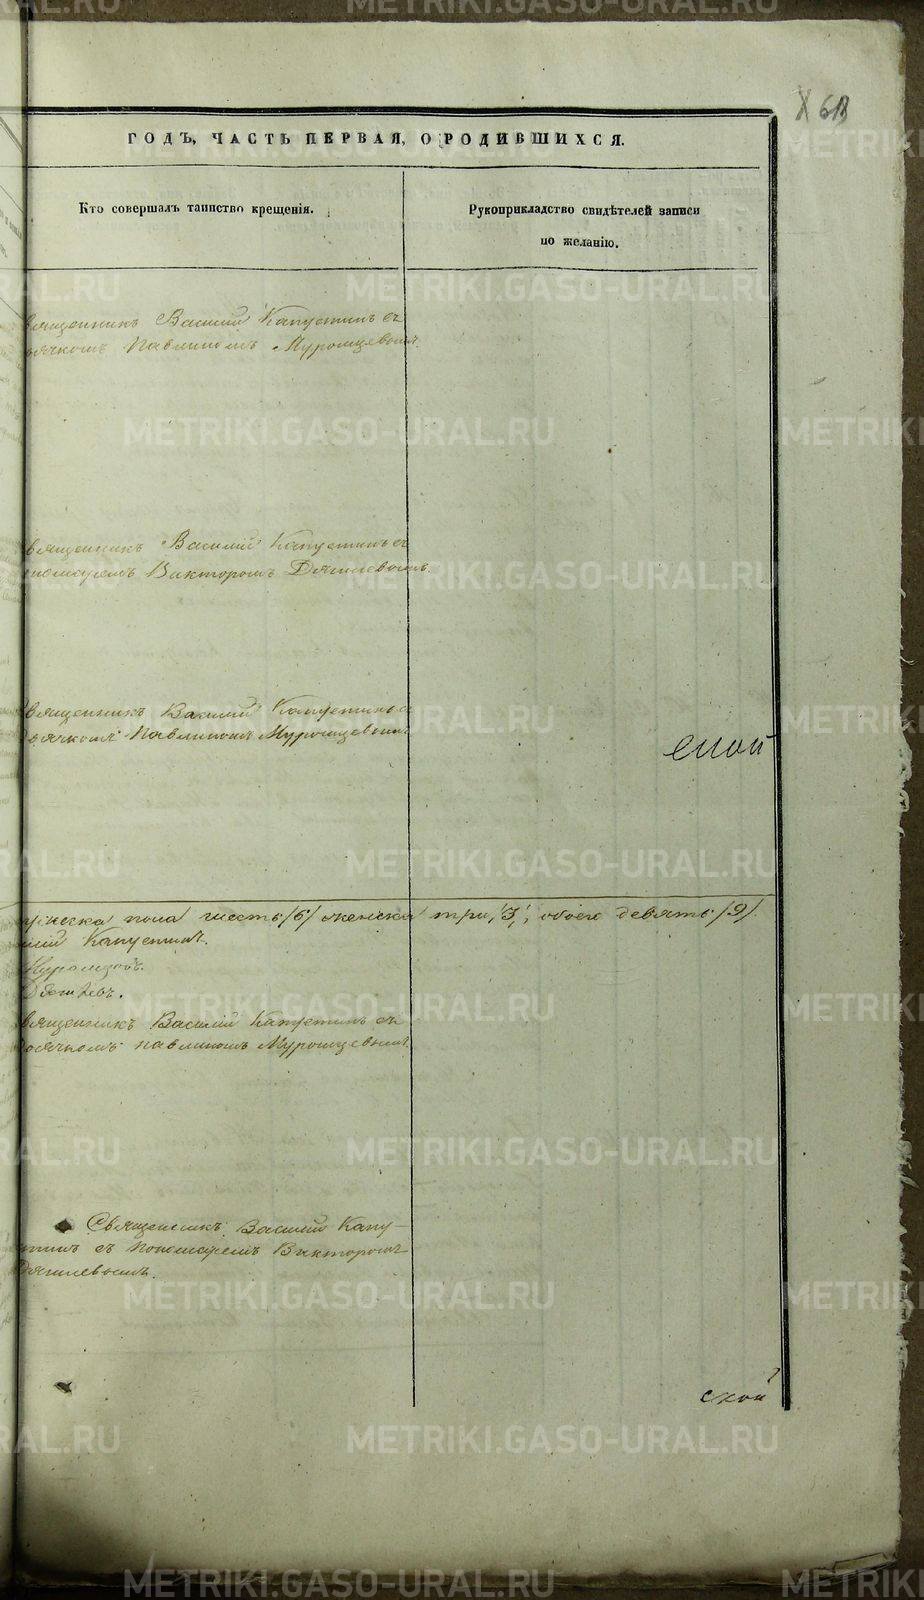 ГОДЪ, ЧАСТЬ ПЕРВАЯ, О РОДИВШИХСЯ.
Кто совершалъ таинство крещенія.
Рукоприкладство свидѣтелей записи
по желанію.
вященникъ Василій Капустинъ съ
ьячкомъ Павлиномъ Муромцевымъ.
вященникъ Василій Капустинъ съ
ономаремъ Викторомъ Дягилевымъ.
вященникъ Василій Капустинъ съ
ьячкомъ Павлиномъ Муромцевымъ
ской
пола шесть /6/ женска три /3/, обоего девять /9/.
лій Капустинъ.
Муромцовъ.
Дягилевъ.
вященникъ Василій Капустинъ съ
ьячкомъ Павлиномъ Муромцевымъ.
Священникъ Василій Капу-
тинъ съ Пономаремъ Викторомъ
Дягилевымъ.
ской
METRIKI.GASO-URAL.RU